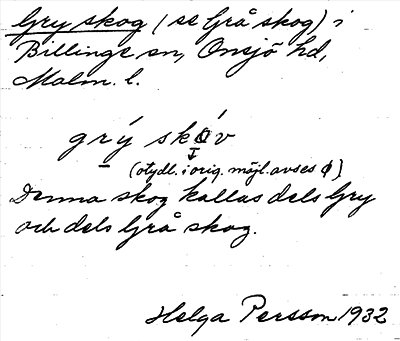 Gry skog (se Grå skog) i
Billinge sn, Onsjö hd,
Malm. l.
grý skǿv
(otydl. i orig. möjl. avses ϕ)
Denna skog kallas dels Gry
och dels Grå skog.
Helga Persson 1932